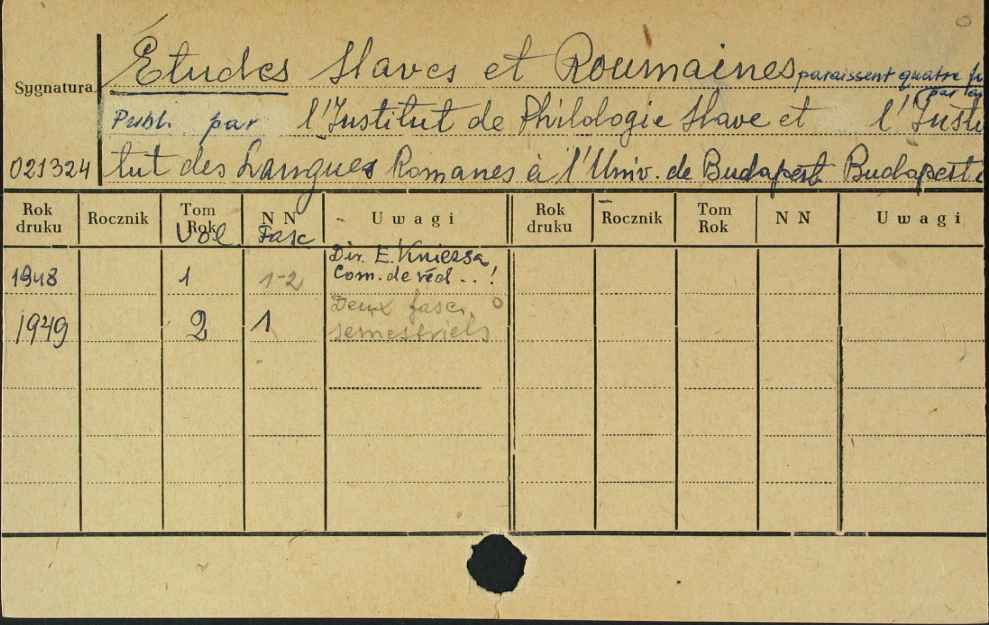 Études Slaves et Roumaines paraissent quatre
Sygnatura
Publ. par l'Institut de Philologie Slave et l'Insti-
021324 tut des Langues Romanes à l'Univ. de Budapest Budapest
Rok druku Rocznik Tom Rok N N Uwagi Rok druku Rocznik Tom Rok N N Uwagi
Vol Fasc
Dir. E. Kniezsa
1948 1 1-2 Com. de réd...!
Deux fasc.
1949 2 1 semestriels